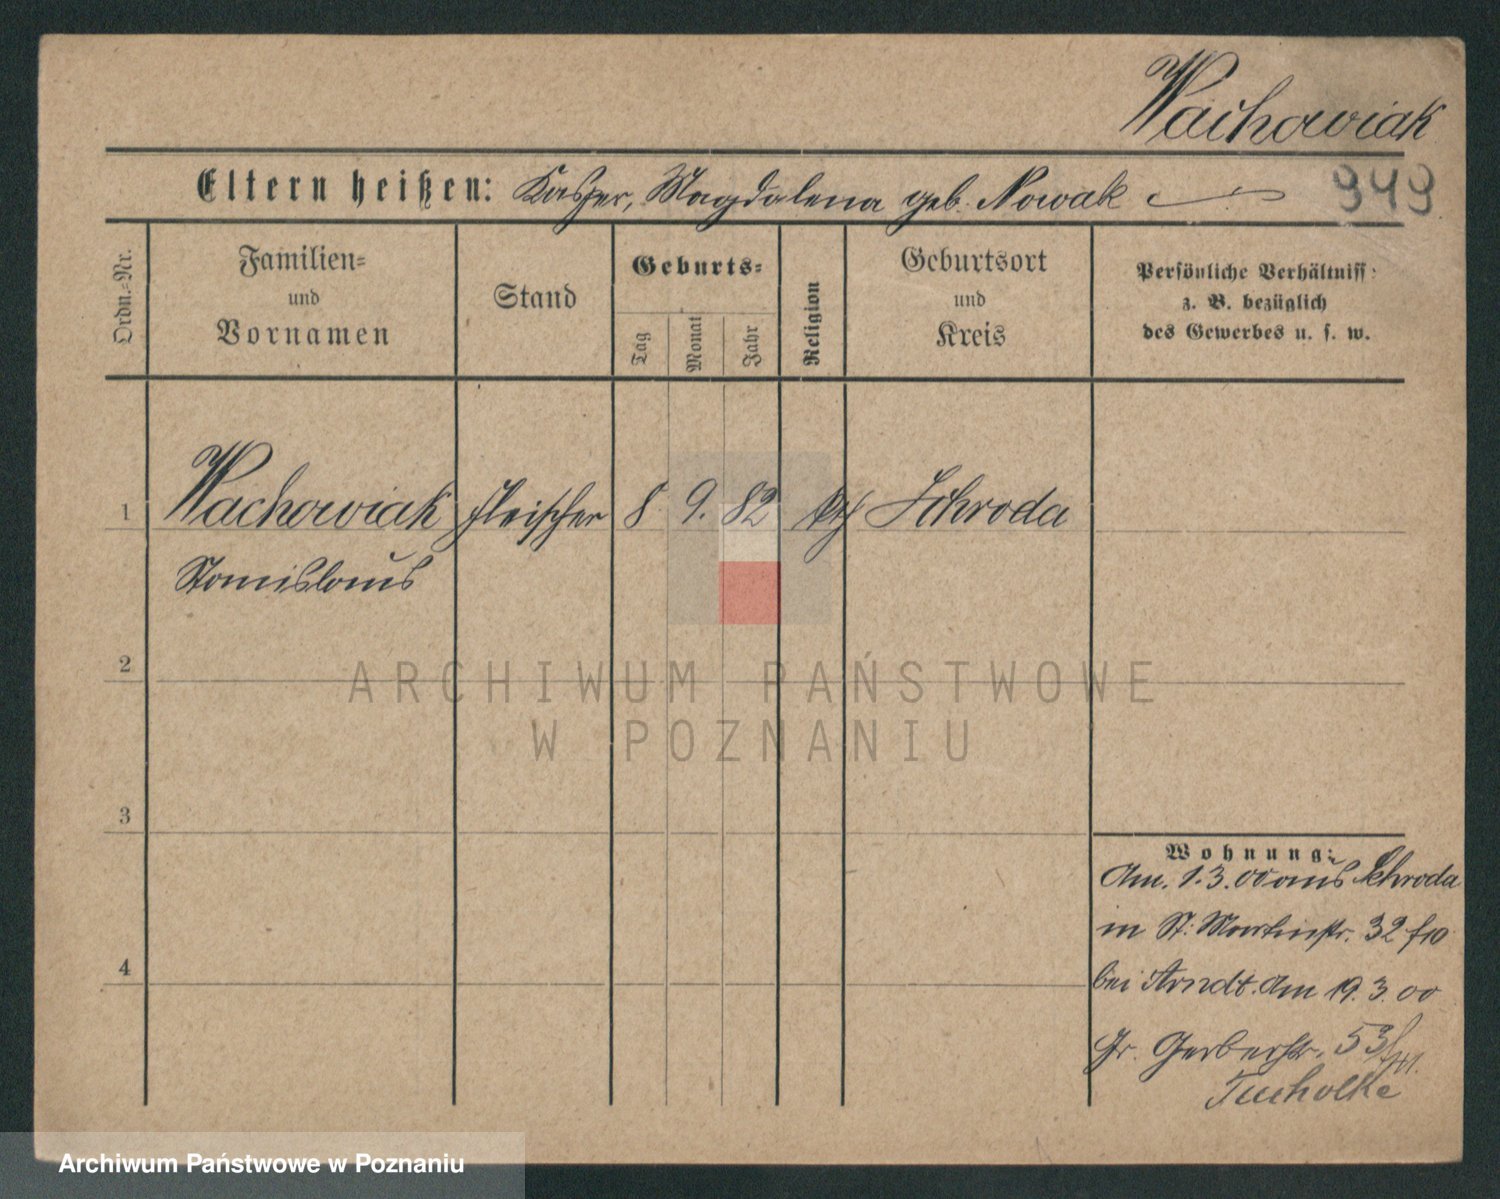 Wachowiak
Eltern heißen: Kasper, Magdalena geb. Nowak
949
Ordn.-Nr.
Familien-
und
Vornamen
Stand
Geburts-
Tag
Monat
Jahr
Religion
Geburtsort
und
Kreis
Persönliche Verhältniss:
z. B. bezüglich
des Gewerbes u. s. w.
1 Wachowiak Fleischer 8. 9. 82 kth Schroda
Stanislaus
2
3
4
Wohnung:
Am. 1.3.00 aus Schroda
in St. Martinstr. 32
bei Arndt. Am 19.3.00
Gr. Gerberstr. 53
Tucholke
ARCHIWUM PAŃSTWOWE
W POZNANIU
Archiwum Państwowe w Poznaniu